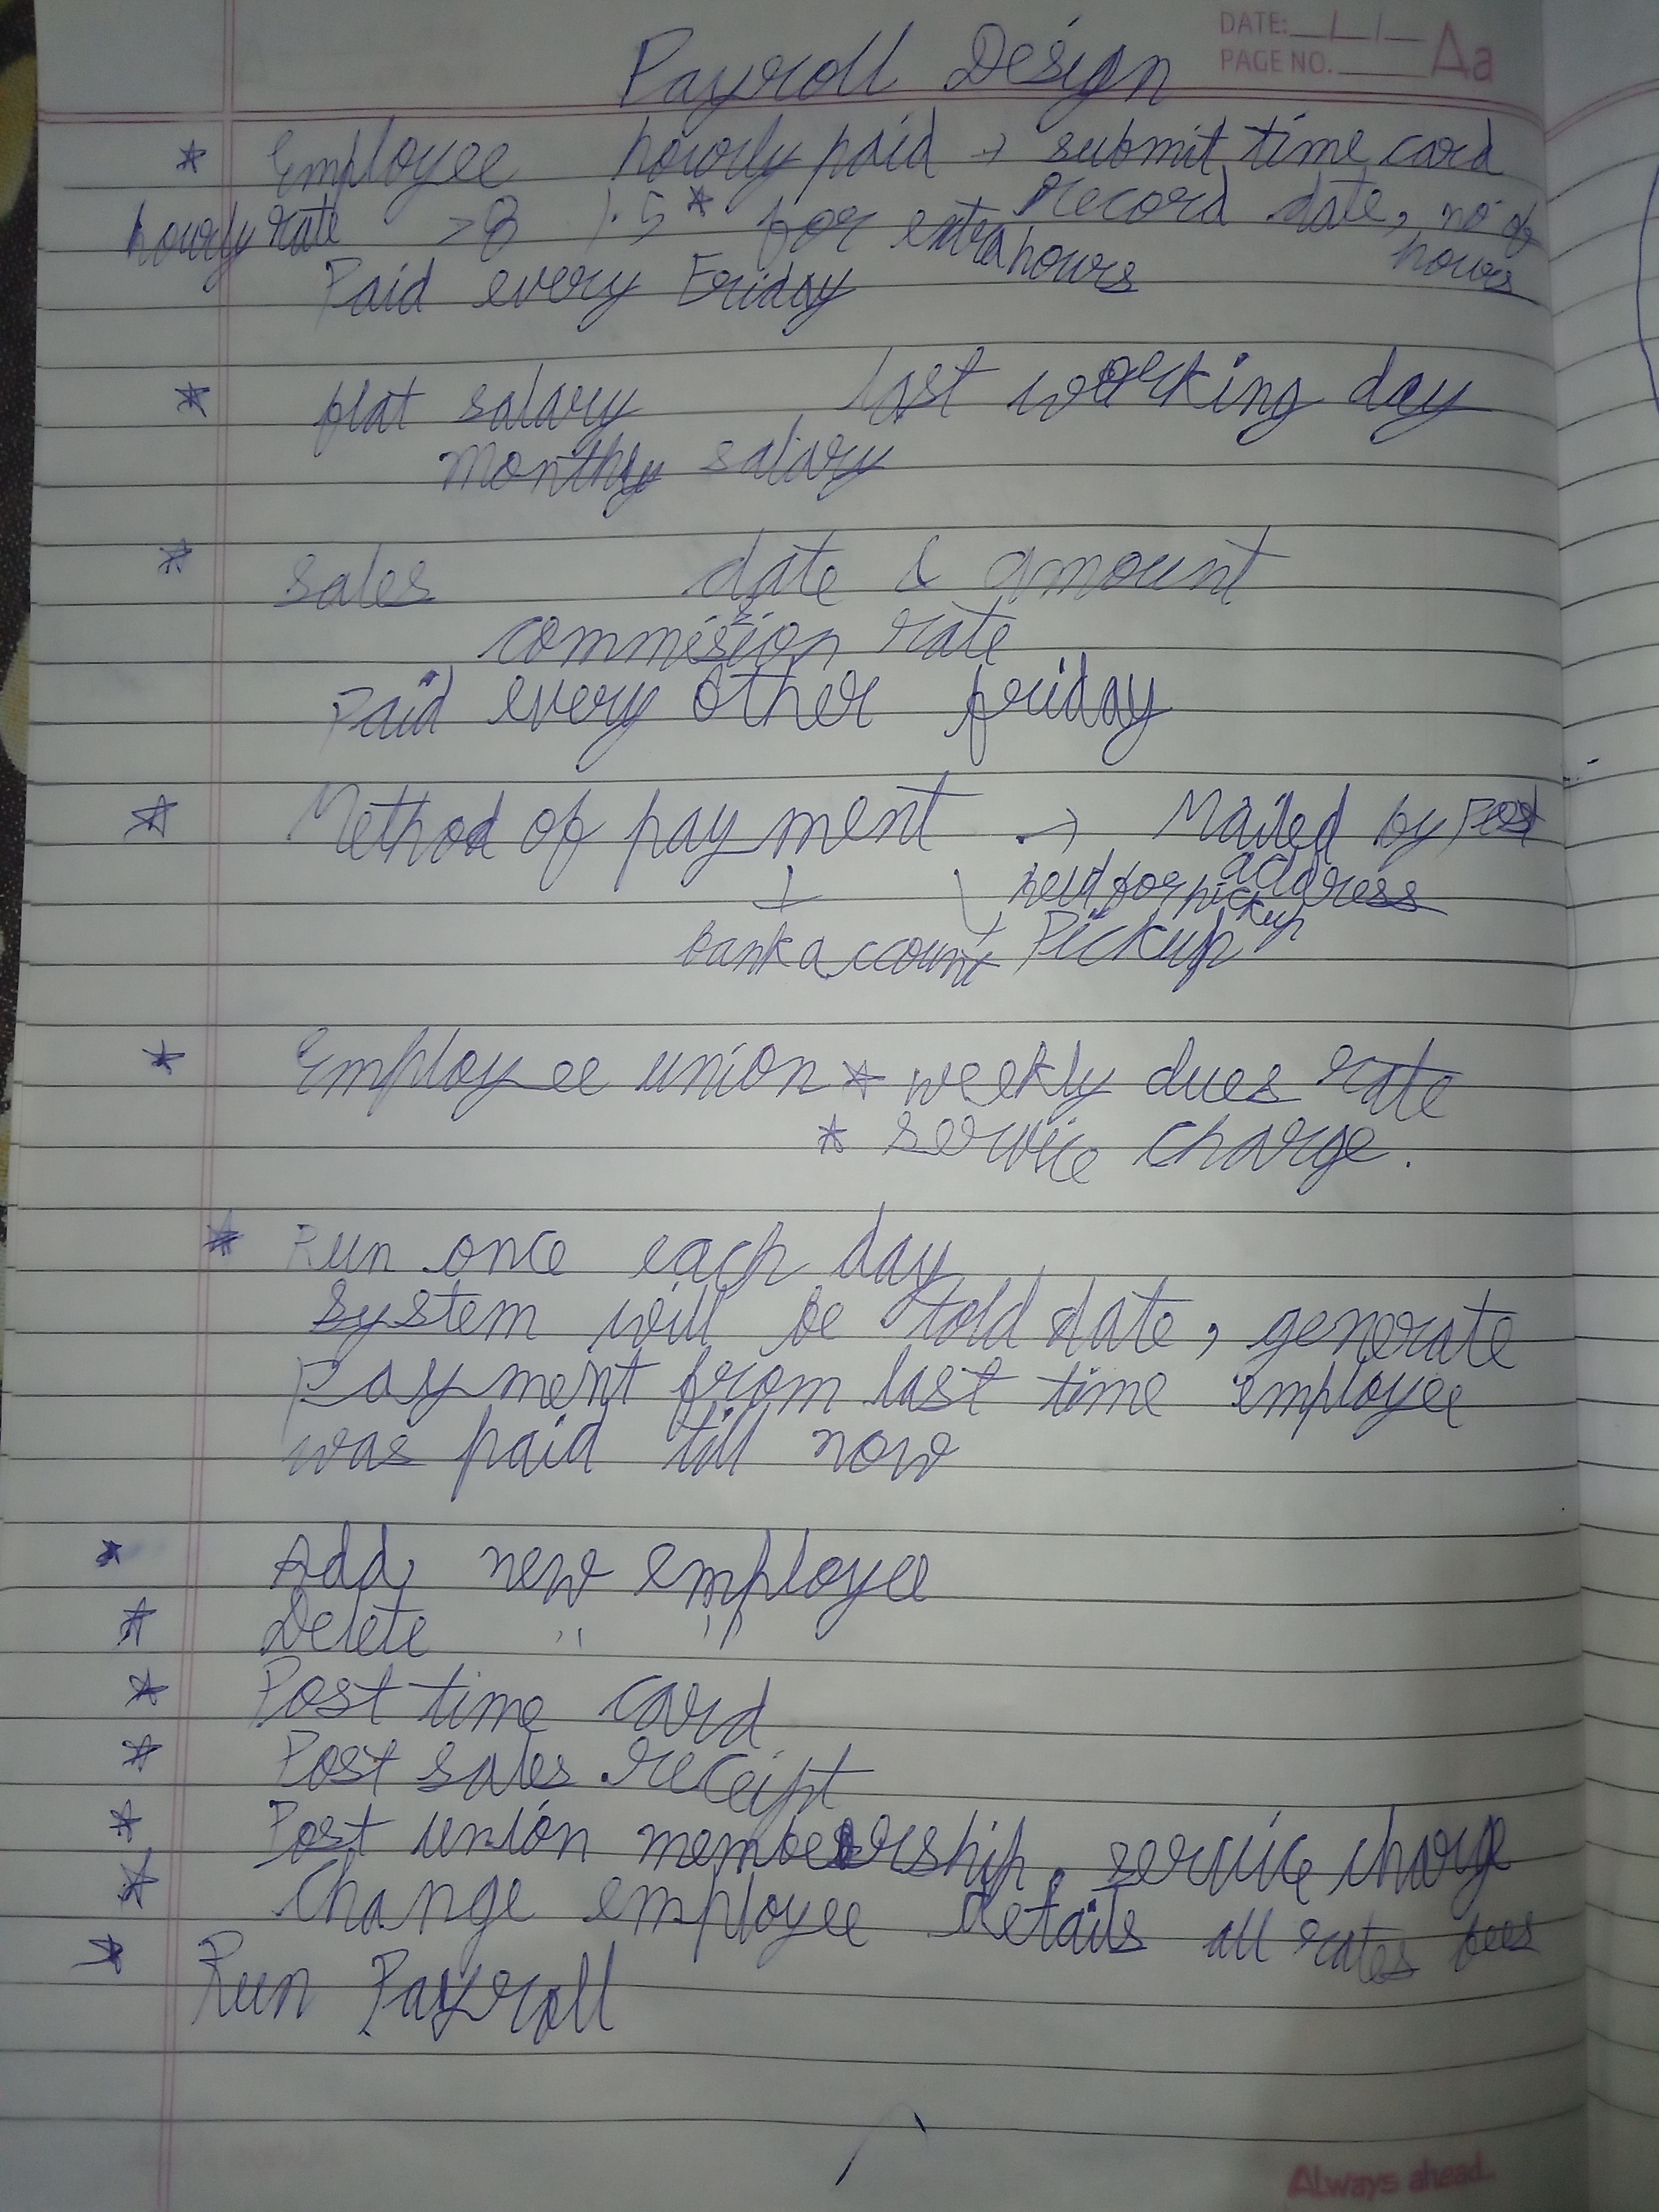 DATE: __/__/__
PAGE NO. ____ Aa
Payroll Design
* Employee hourly paid → submit time card
record date, no of hours
hourly rate >8 1.5* for extra hours
Paid every Friday
* flat salary last working day
monthly salary
* sales date & amount
commision rate
Paid every other friday
* Method of payment → Mailed by Post
address
held for pickup
bank account Pickup
* Employee union * weekly dues rate
* service charge.
* Run once each day
System will be told date, generate
Payment from last time employee
was paid till now
* Add new employee
* Delete " "
* Post time card
* Post sales receipt
* Post union membership, service charge
* Change employee details all rates fees
* Run Payroll
Always ahead..